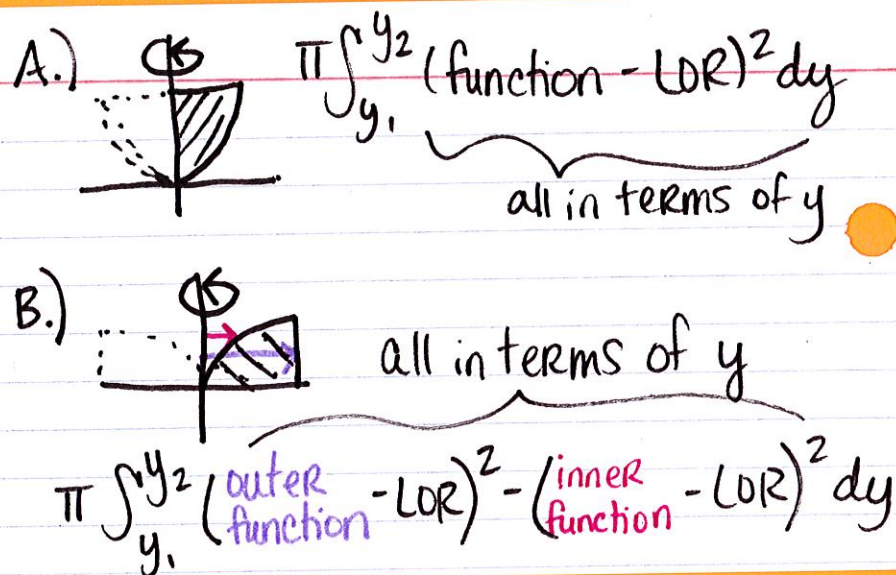 A.) π∫y₁y₂ (function - LOR)² dy
all in terms of y
B.)
all in terms of y
π∫y₁y₂ (outer function - LOR)² - (inner function - LOR)² dy